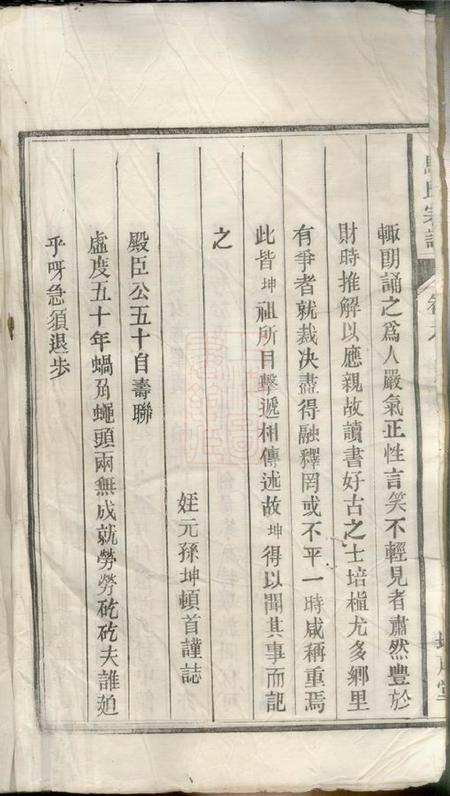 輙朗誦之爲人嚴氣正性言笑不輕見者肅然豐於
財時推解以應親故讀書好古之士培植尤多鄉里
有爭者就裁决盡得融釋罔或不平一時咸稱重焉
此皆坤祖所目擊遞相傳述故坤得以聞其事而記
之
姪元孫坤頓首謹誌
殿臣公五十自壽聯
虛度五十年蝸角蠅頭兩無成就勞勞矻矻夫誰廹
乎呀急須退步